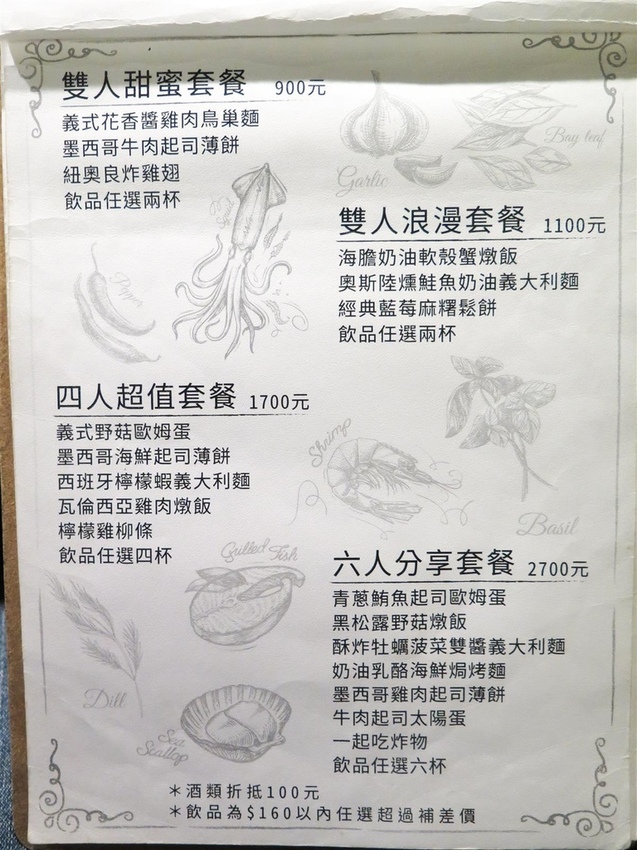 雙人甜蜜套餐 900元
義式花香醬雞肉鳥巢麵
墨西哥牛肉起司薄餅
紐奧良炸雞翅
飲品任選兩杯
Garlic
Bay leaf
雙人浪漫套餐 1100元
海膽奶油軟殼蟹燉飯
奧斯陸燻鮭魚奶油義大利麵
經典藍莓麻糬鬆餅
飲品任選兩杯
Pepper
四人超值套餐 1700元
義式野菇歐姆蛋
墨西哥海鮮起司薄餅
西班牙檸檬蝦義大利麵
瓦倫西亞雞肉燉飯
檸檬雞柳條
飲品任選四杯
Shrimp
Basil
Grilled Fish
六人分享套餐 2700元
青蔥鮪魚起司歐姆蛋
黑松露野菇燉飯
酥炸牡蠣菠菜雙醬義大利麵
奶油乳酪海鮮焗烤麵
墨西哥雞肉起司薄餅
牛肉起司太陽蛋
一起吃炸物
飲品任選六杯
Dill
Sea
Scallop
＊酒類折抵100元
＊飲品為$160以內任選超過補差價